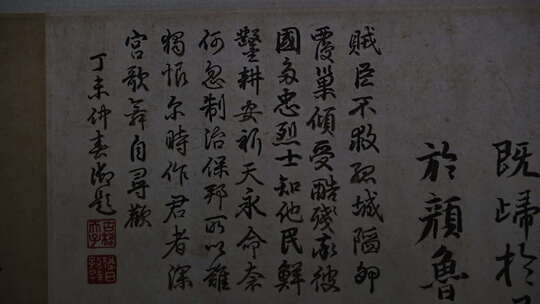 既歸於
於顏魯
賊臣不救孤城陷卵
覆巢傾受酷殘彼
國多忠烈士知他民鮮
鑿耕安祈天永命奈
何忽制治保邦所以難
獨恨尔時作君者深
宮歌舞自尋歡
丁未仲春御題
古稀天子
猶日孜孜